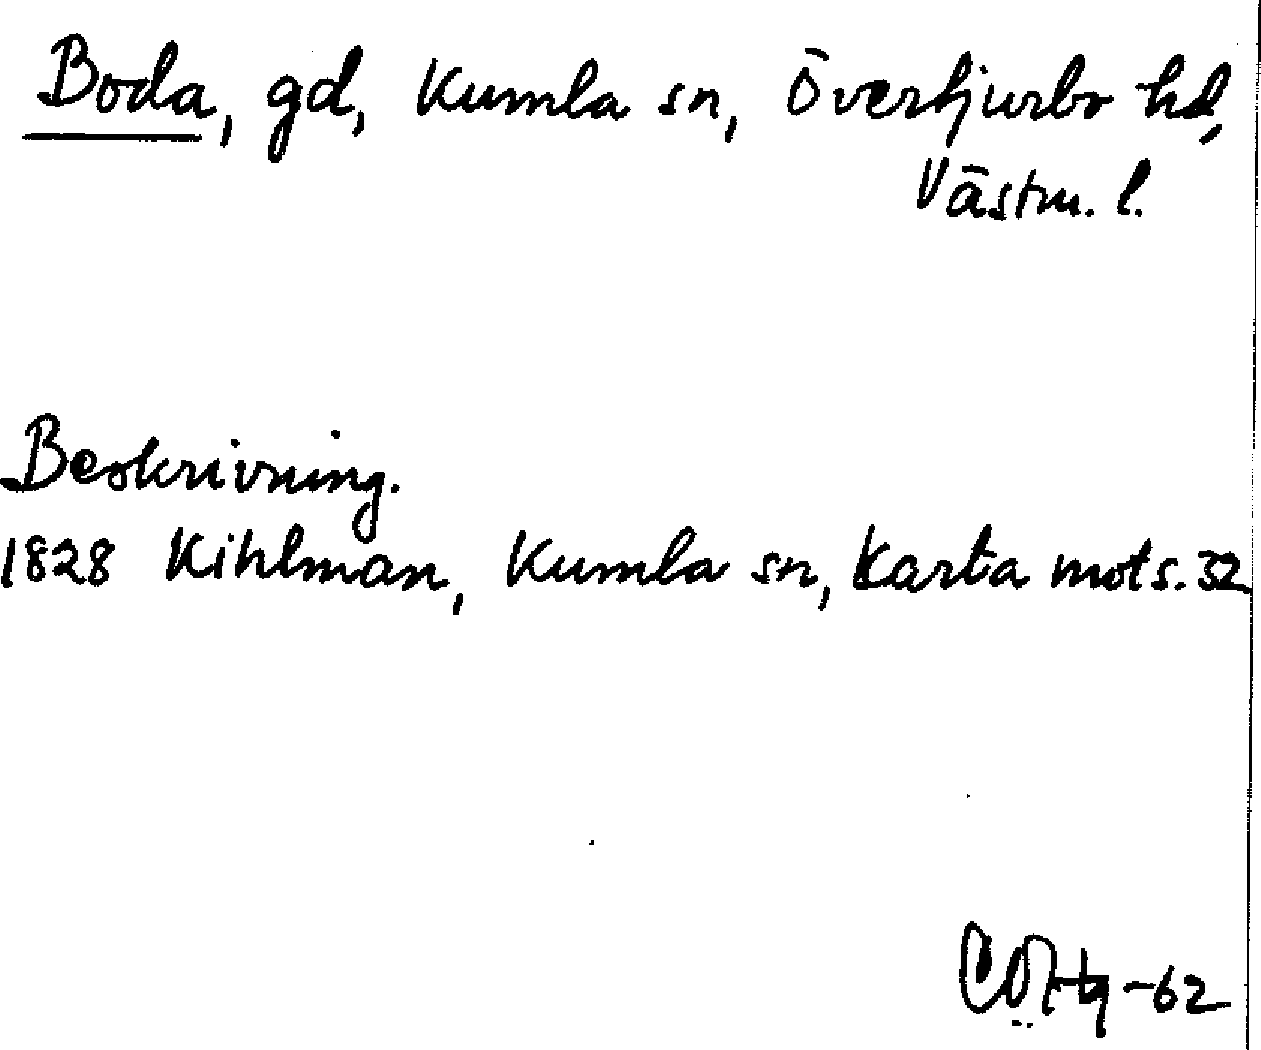 Boda, gd, Kumla sn, Övertjurbo hd,
Västm. l.
Beskrivning.
1828 Kihlman, Kumla sn, Karta mots. 32
-62